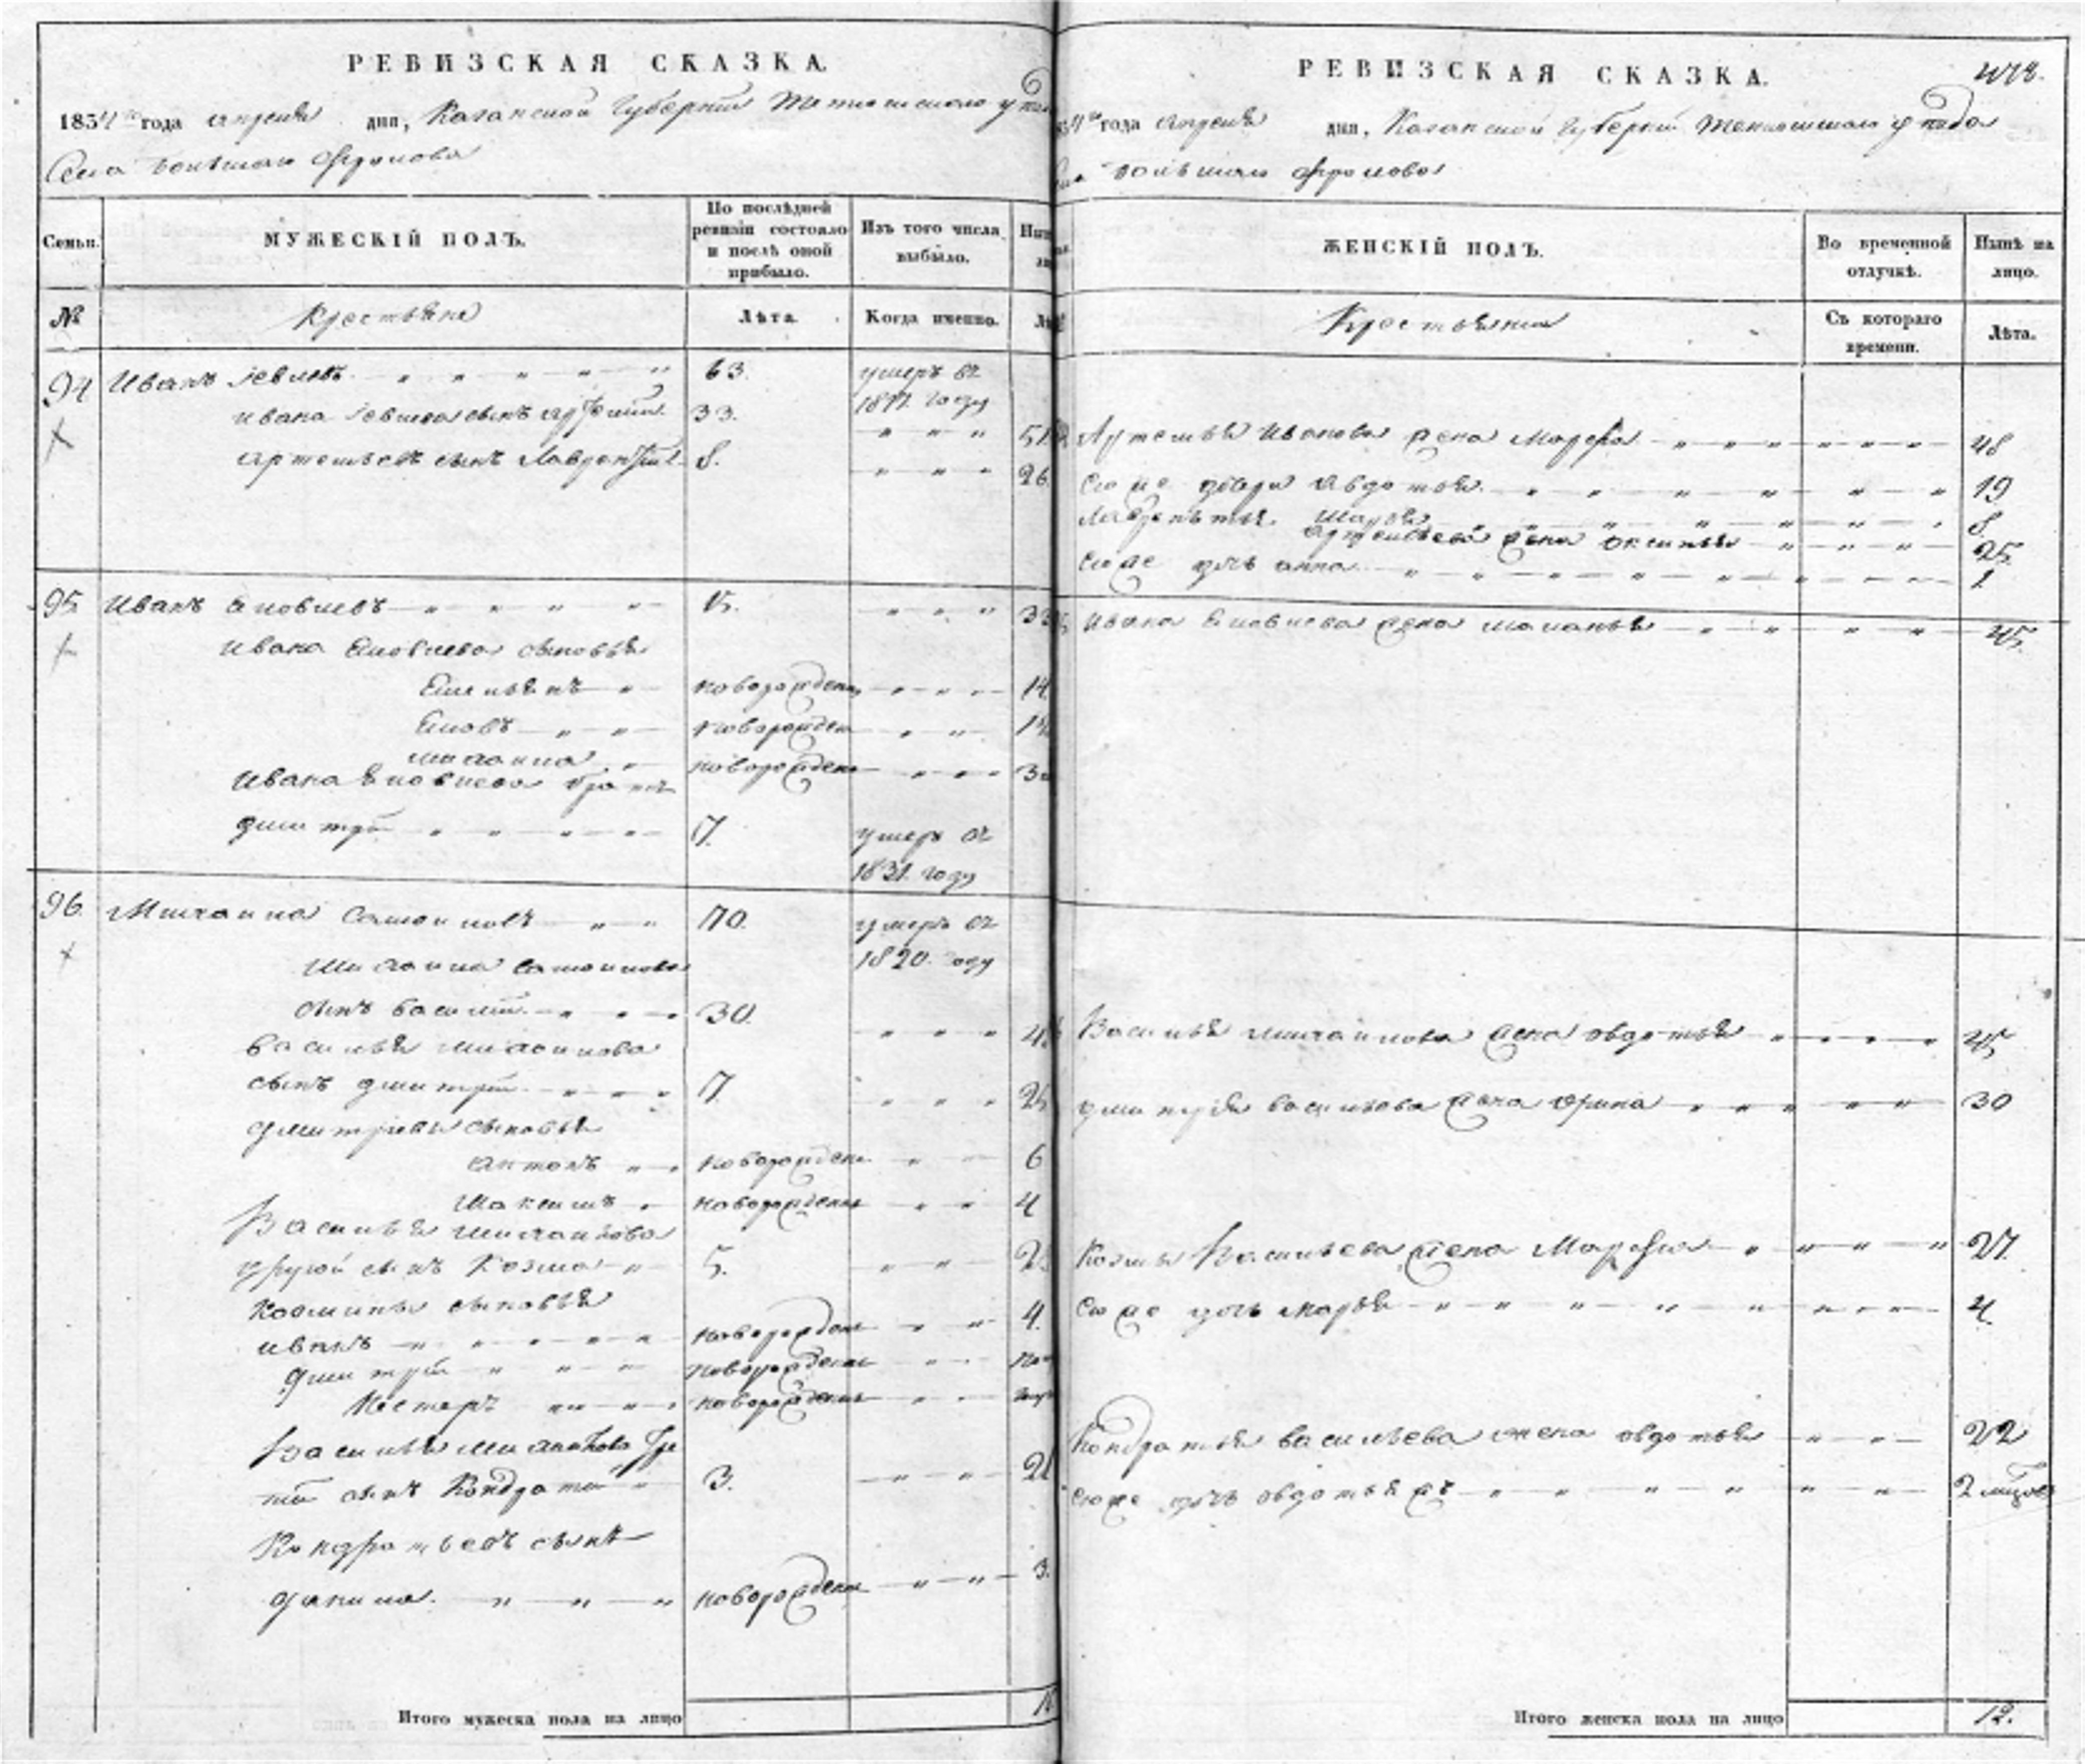 РЕВИЗСКАЯ СКАЗКА.
1834 года апреля дня, Казанской Губернии Тетюшскаго уезда
Села Большаго Фролова
Семьи. МУЖЕСКІЙ ПОЛЪ. По послѣдней ревизіи состояло и послѣ оной прибыло. Изъ того числа выбыло.
№ Крестьяне Лѣта. Когда именно.
94 Иванъ Іевлевъ 63. умеръ въ
Ивана Іевлева сынъ Артемій 33. году 51
Артемьевъ сынъ Лаврентій 8. 26.
95 Иванъ Яковлевъ 15. 33
Ивана Яковлева сыновья
Емельянъ новорожден 14
Яковъ новорожден
Михаила новорожден
Ивана Яковлева братъ
Дмитрій 7. умеръ въ
1831. году
96. Михаила Самойловъ 70. умеръ въ
Михаила Самойлова 1820. году
сынъ Василій 30.
Василья Михайлова
сынъ Дмитрій 7. 25
Дмитріевы сыновья
Антонъ новорожден 6
Максимъ новорожден 4
Василья Михайлова
другой сынъ Козма 5.
Козмины сыновья
Иванъ новорожден 4.
Дмитрій новорожден
Нестеръ новорожден
Василья Михайлова тре
тій сынъ Кондратій 3. 21
Кондратьевъ сынъ
Данила новорожден 3.
Итого мужеска пола на лицо
РЕВИЗСКАЯ СКАЗКА.
года апреля дня, Казанской Губерніи Тетюшскаго уезда
Большаго Фролова
ЖЕНСКІЙ ПОЛЪ. Во временной отлучкѣ. Нынѣ на лицо.
Крестьянки Съ котораго времени. Лѣта.
Артемья Иванова жена Марфа 48
Его же дочери Авдотья 19
Марья 8
Лаврентья Артемьева жена Оксинья 25
Его же дочь Анна 1
Ивана Яковлева жена Маланья 45
Василья Михайлова жена Овдотья 45
Дмитрія Васильева жена Орина 30
Козмы Васильева жена Марфа 27.
Его же дочь Марья 4
Кондратья Васильева жена Овдотья 22
Его же дочь Овдотья жъ 2
Итого женска пола на лицо 12.